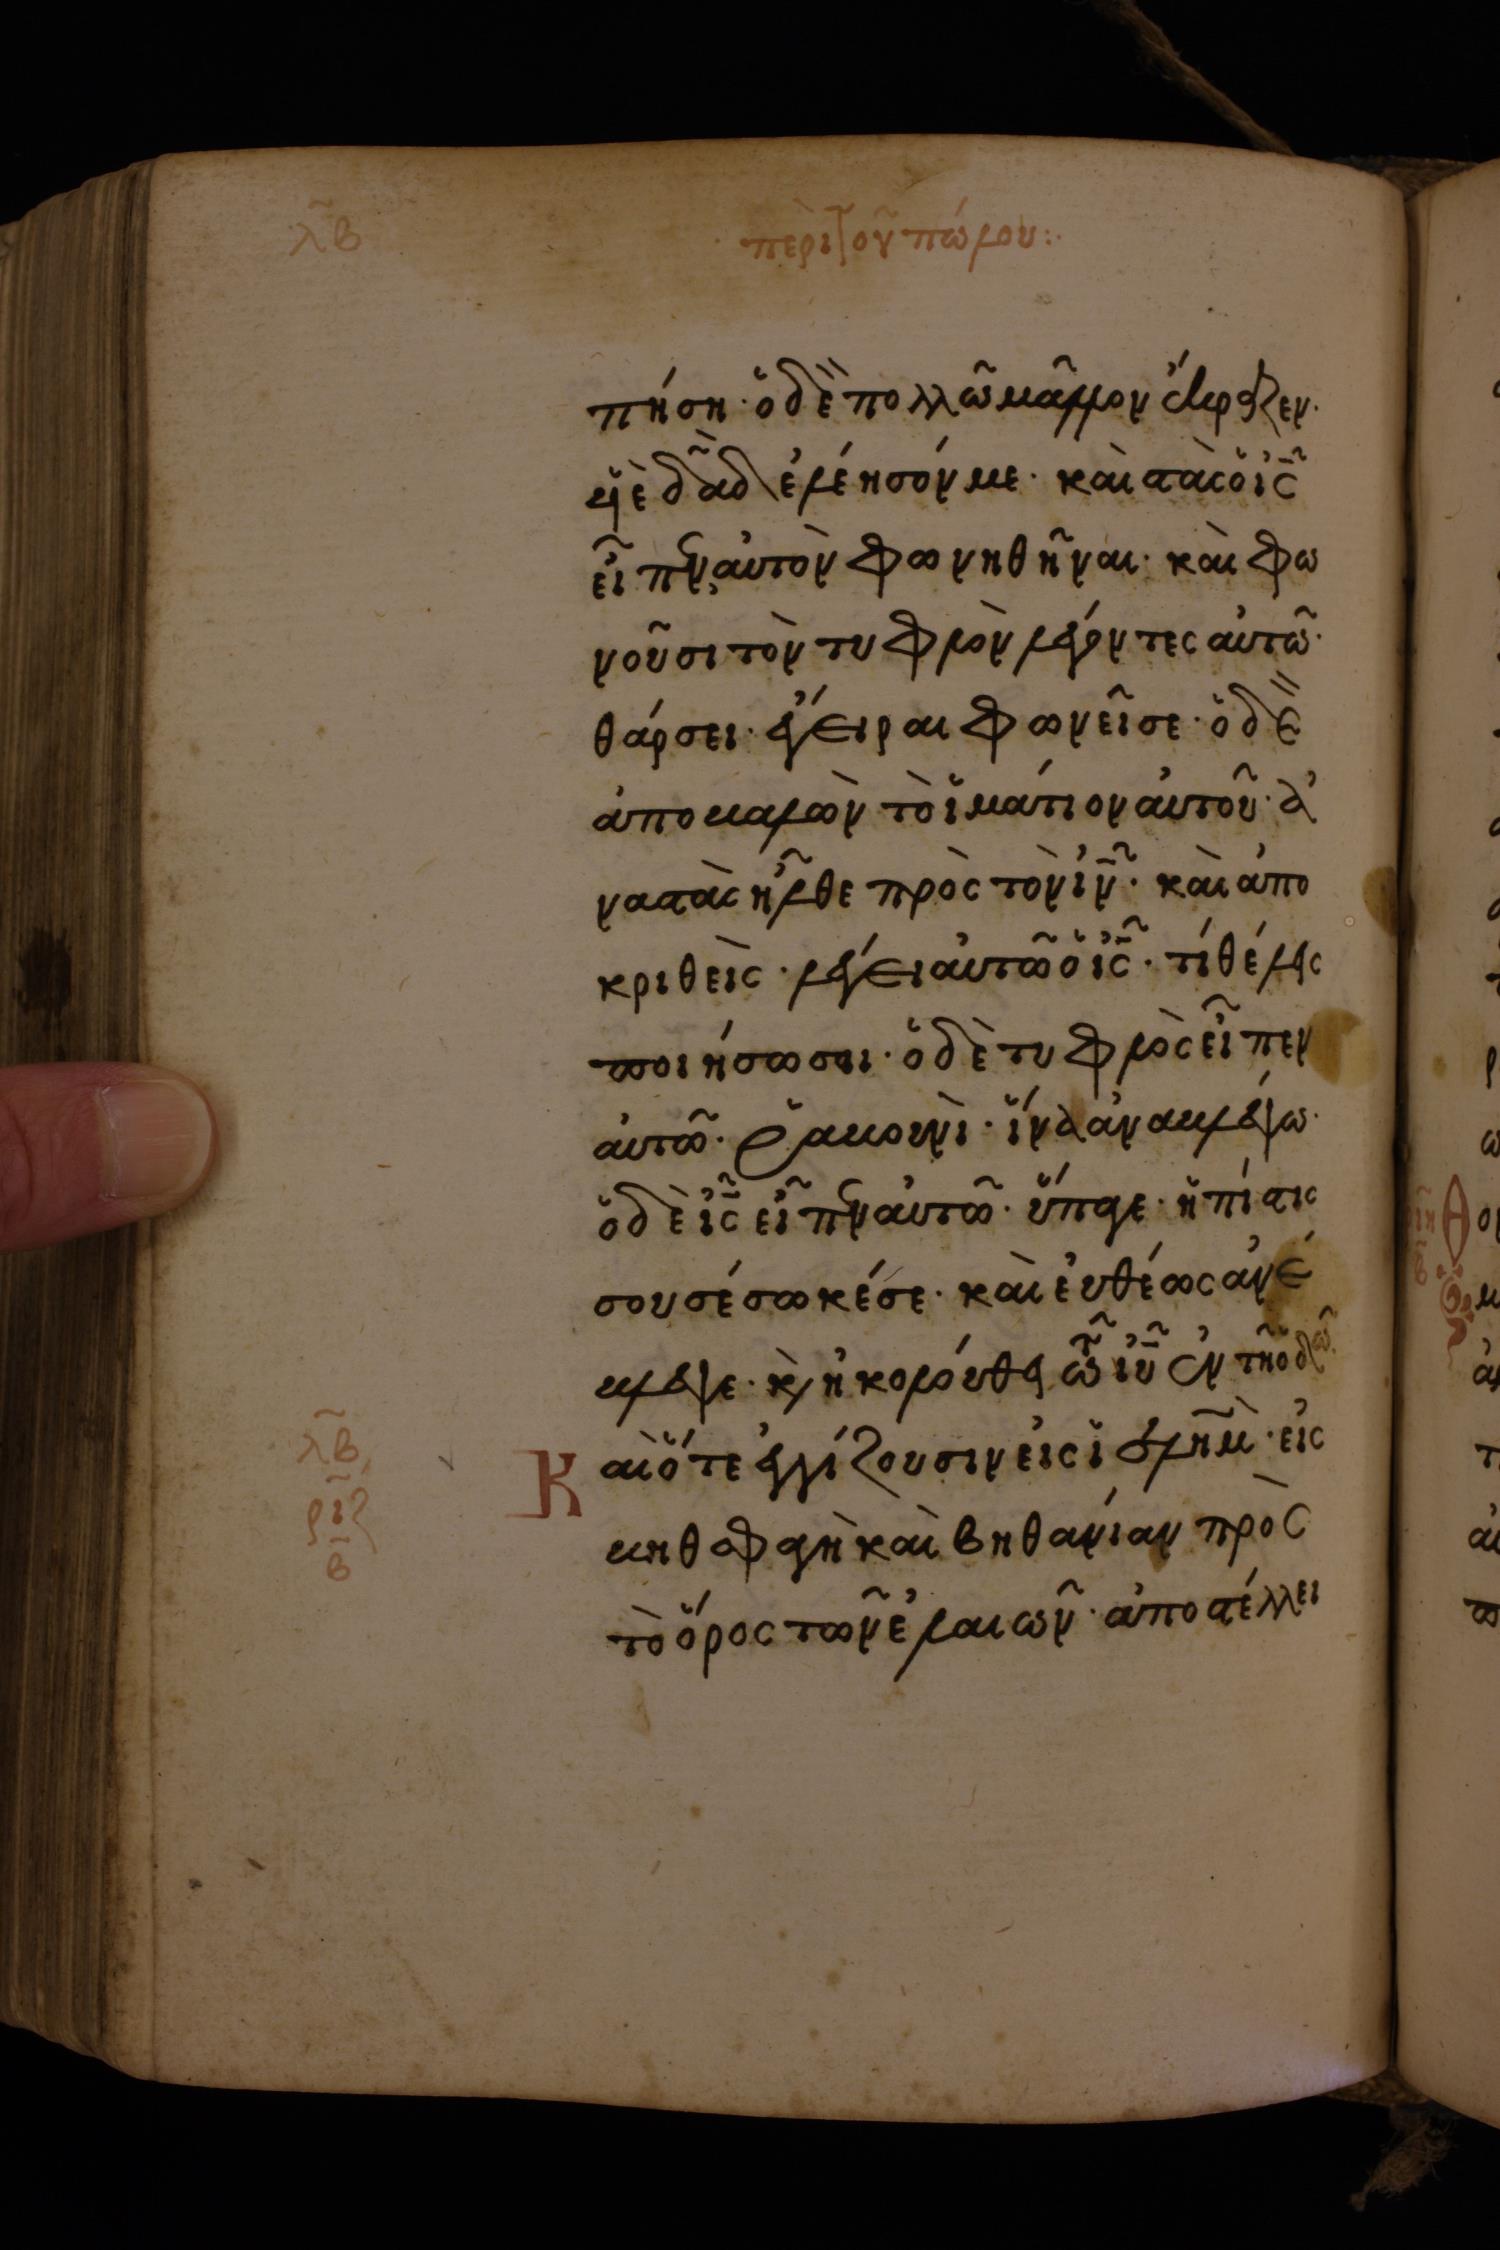 λ̃β
περὶ τοῦ πώλου:
πήση· ὁ δὲ πολλῶ μᾶλλον ἔκραζεν·
υἱὲ δα̃δ ἐλέησόν με· καὶ στὰς ὁ ις̃
εἶπεν αὐτὸν φωνηθῆναι· καὶ φω
νοῦσι τὸν τυφλὸν λέγοντες αὐτῶ·
θάρσει· ἔγειραι φωνεῖ σε· ὁ δὲ
ἀποβαλὼν τὸ ἱμάτιον αὐτοῦ· ἀ
ναστὰς ἦλθε πρὸς τὸν ιν̃· καὶ ἀπο
κριθεὶς· λέγει αὐτῶ ὁ ις̃· τί θέλεις
ποιήσω σοι· ὁ δὲ τυφλὸς εἶπεν
αὐτῶ· ῥαβουνὶ· ἵνα ἀναβλέψω·
ὁ δὲ ις̃ εἶπεν αὐτῶ· ὕπαγε· ἡ πίστις
σου σέσωκέ σε· καὶ εὐθέως ἀνέ
βλεψε· κὶ ἠκολούθει τῶ ιυ̃ ἐν τῆ ὁδῶ·
Καὶ ὅτε ἐγγίζουσιν εἰς ἱελη̃μ· εἰς
βηθσφαγὴ καὶ βηθανίαν πρὸς
τὸ ὄρος τῶν ἐλαιῶν· ἀποστέλλει
λ̃β
ρ̃ιζ
β